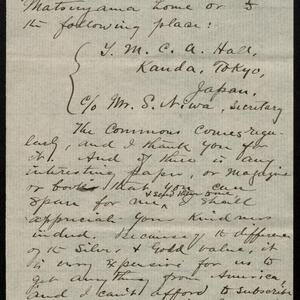 Matsuyama home or to
the following place:
Y. M. C. A. Hall,
Kanda, Tokyo,
Japan.
c/o Mr. S. Niwa, Secretary
The Commons comes regu-
larly, and I thank you for
it. And if there is any
interesting paper, or magazine
or books that you can
spare for me, I shall
appreciate your kindness
indeed. Because the difference
of the Silver & Gold value, it
is very expensive for us to
get anything from America,
and I can't afford to subscribe